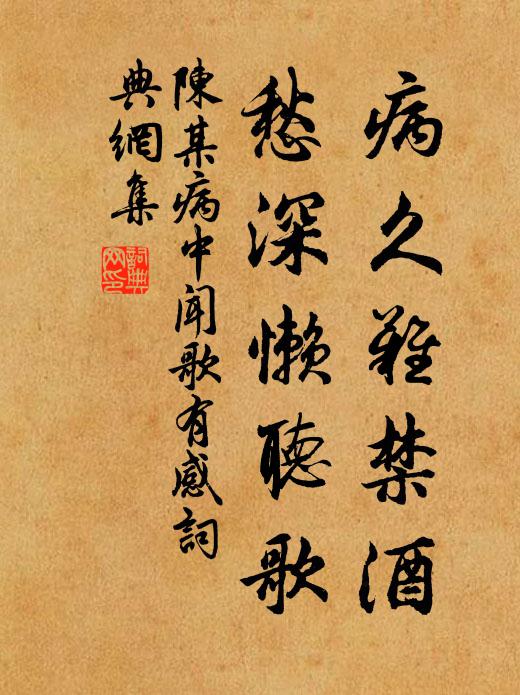 病久難禁酒
愁深懒聽歌
陳某病中聞歌有感詞
典網集
詞典
网印